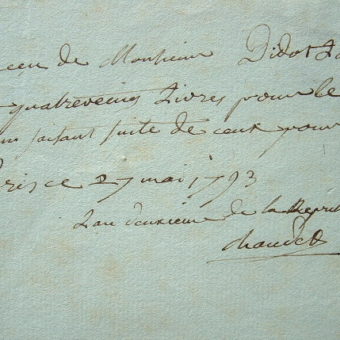 ceu de Monsieur Didot
quatreveing Livres pour le
faisant suite de ceux pour
ris ce 27 mai 1793
L'an deuxieme de la Repu
chaudet